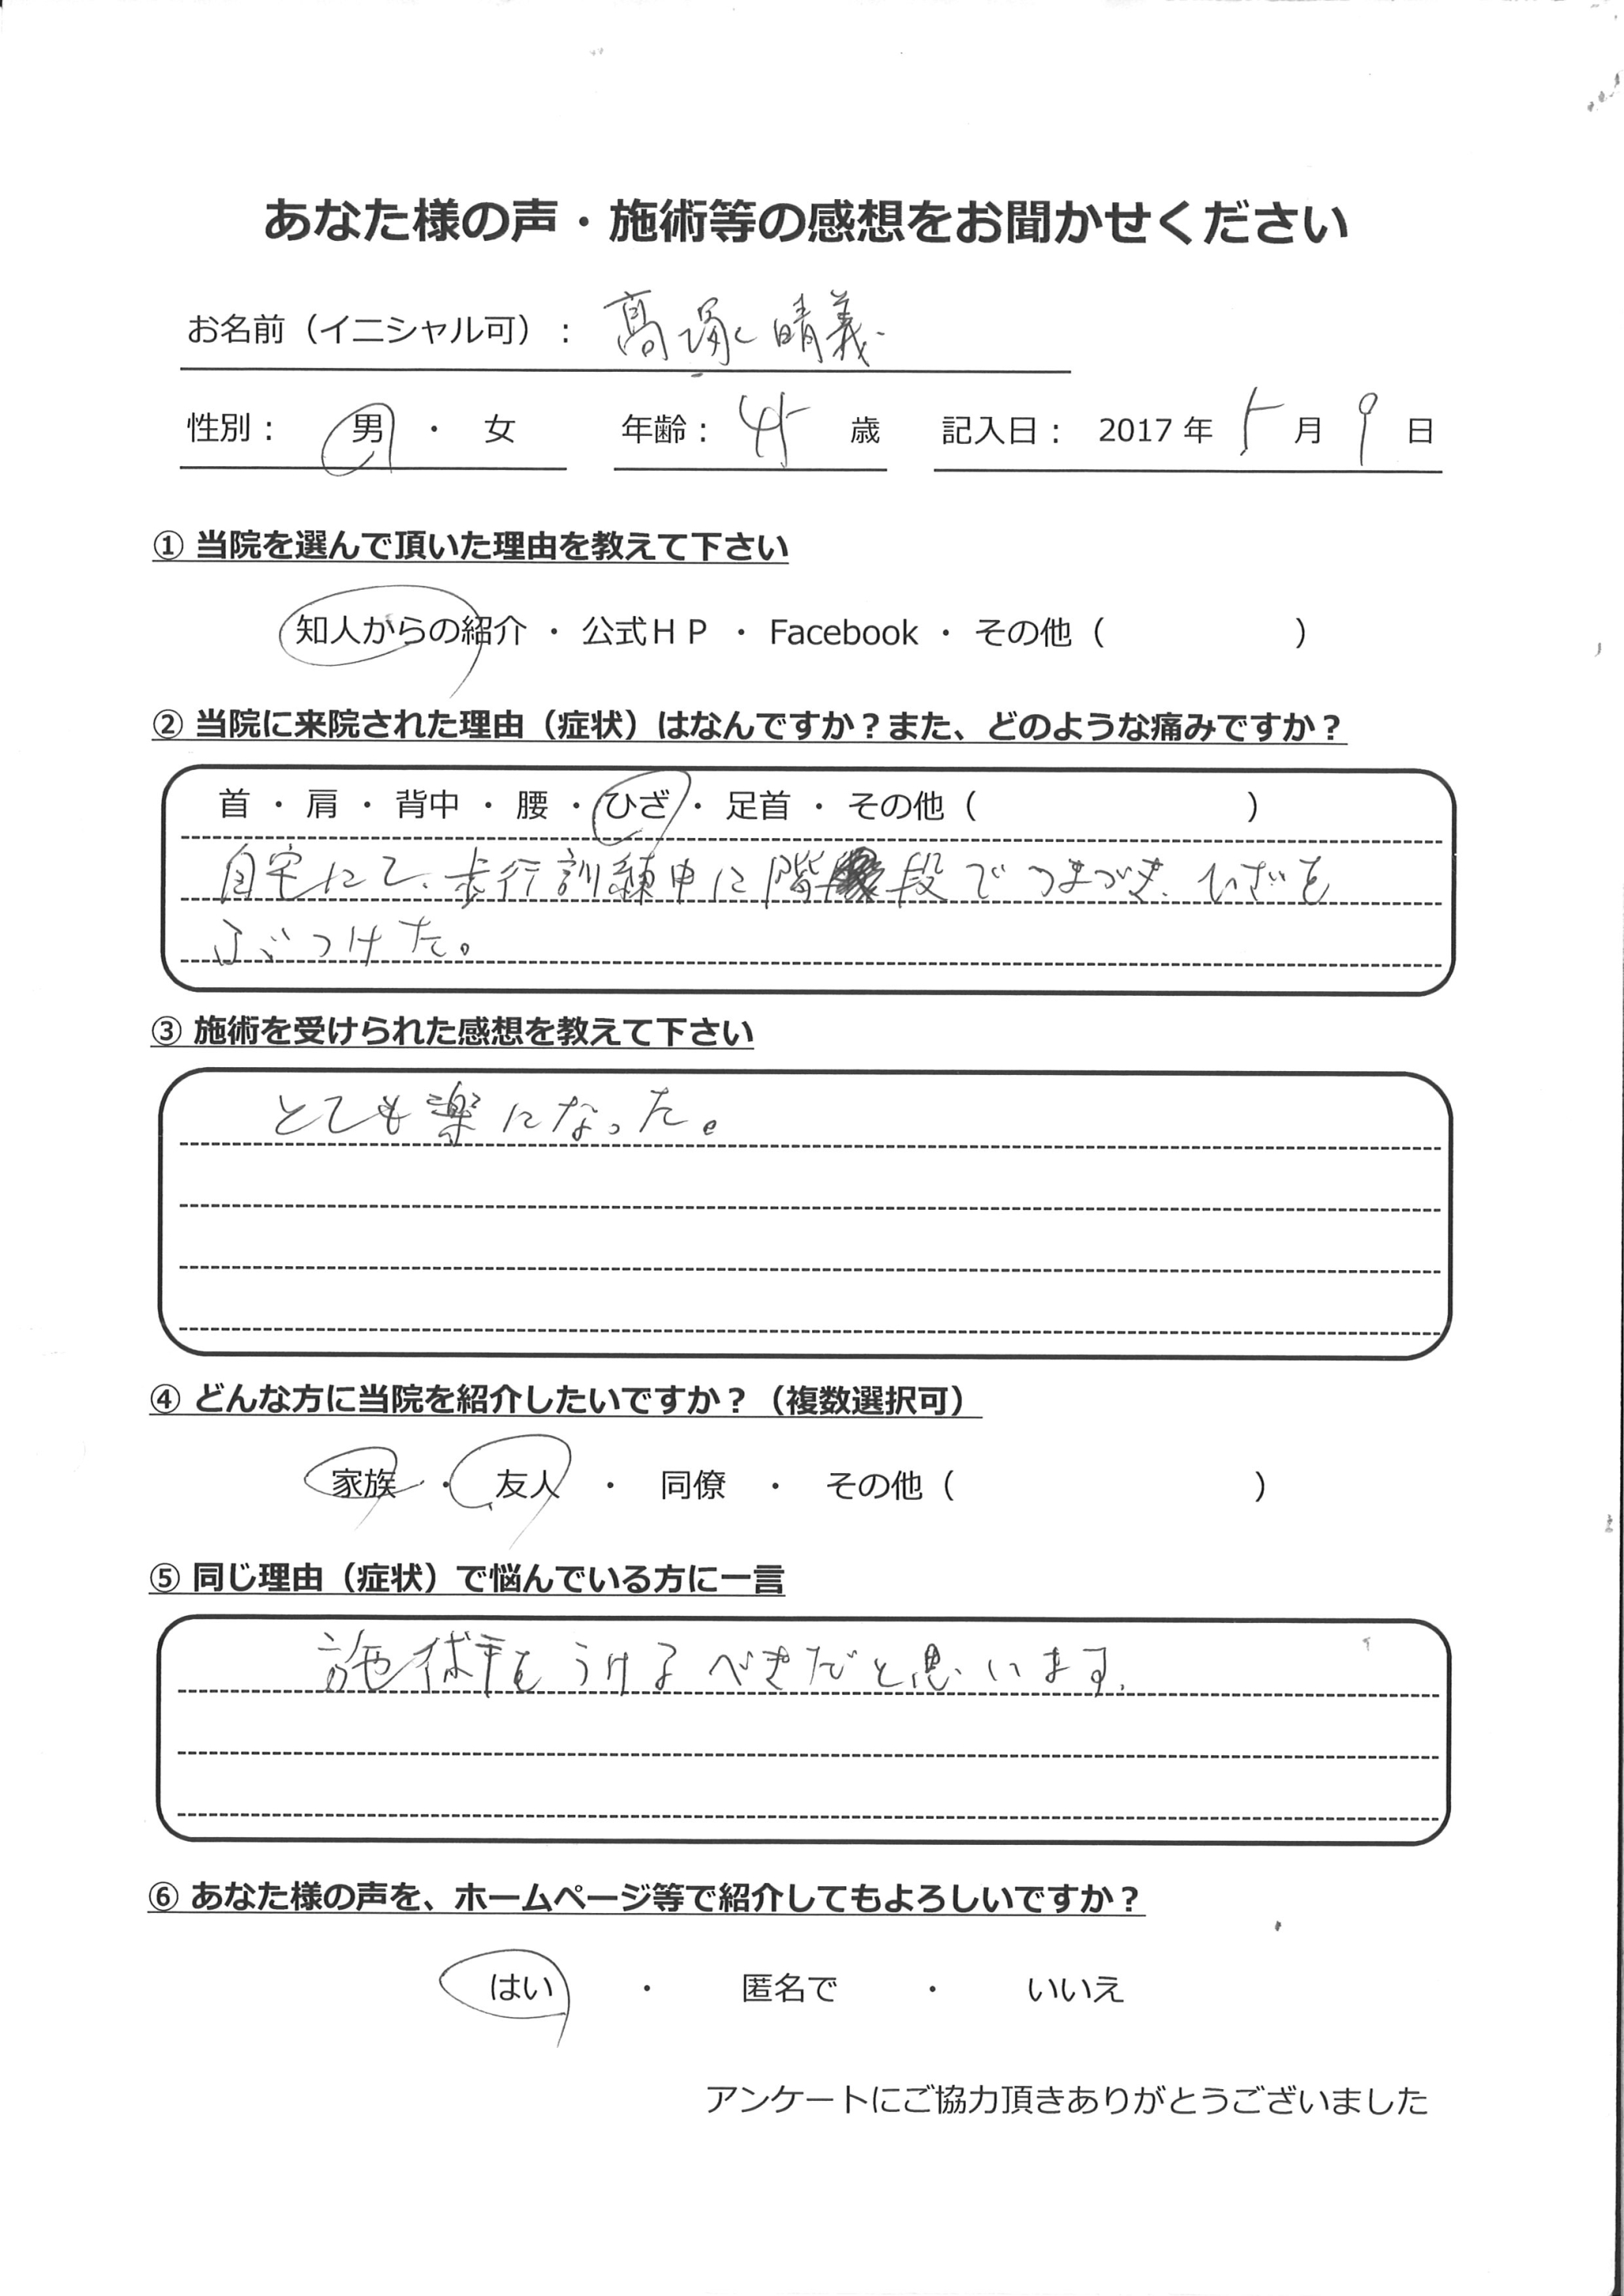 あなた様の声・施術等の感想をお聞かせください
お名前（イニシャル可）： 髙塚 晴義
性別： 男 ・ 女 年齢： 45 歳 記入日： 2017 年 5 月 9 日
① 当院を選んで頂いた理由を教えて下さい
知人からの紹介 ・ 公式ＨＰ ・ Facebook ・ その他（ ）
② 当院に来院された理由（症状）はなんですか？また、どのような痛みですか？
首 ・ 肩 ・ 背中 ・ 腰 ・ ひざ ・ 足首 ・ その他（ ）
自宅にて、歩行訓練中に階段でつまづき、ひざを
ぶつけた。
③ 施術を受けられた感想を教えて下さい
とても楽になった。
④ どんな方に当院を紹介したいですか？（複数選択可）
家族 ・ 友人 ・ 同僚 ・ その他（ ）
⑤ 同じ理由（症状）で悩んでいる方に一言
施術をうけるべきだと思います.
⑥ あなた様の声を、ホームページ等で紹介してもよろしいですか？
はい ・ 匿名で ・ いいえ
アンケートにご協力頂きありがとうございました